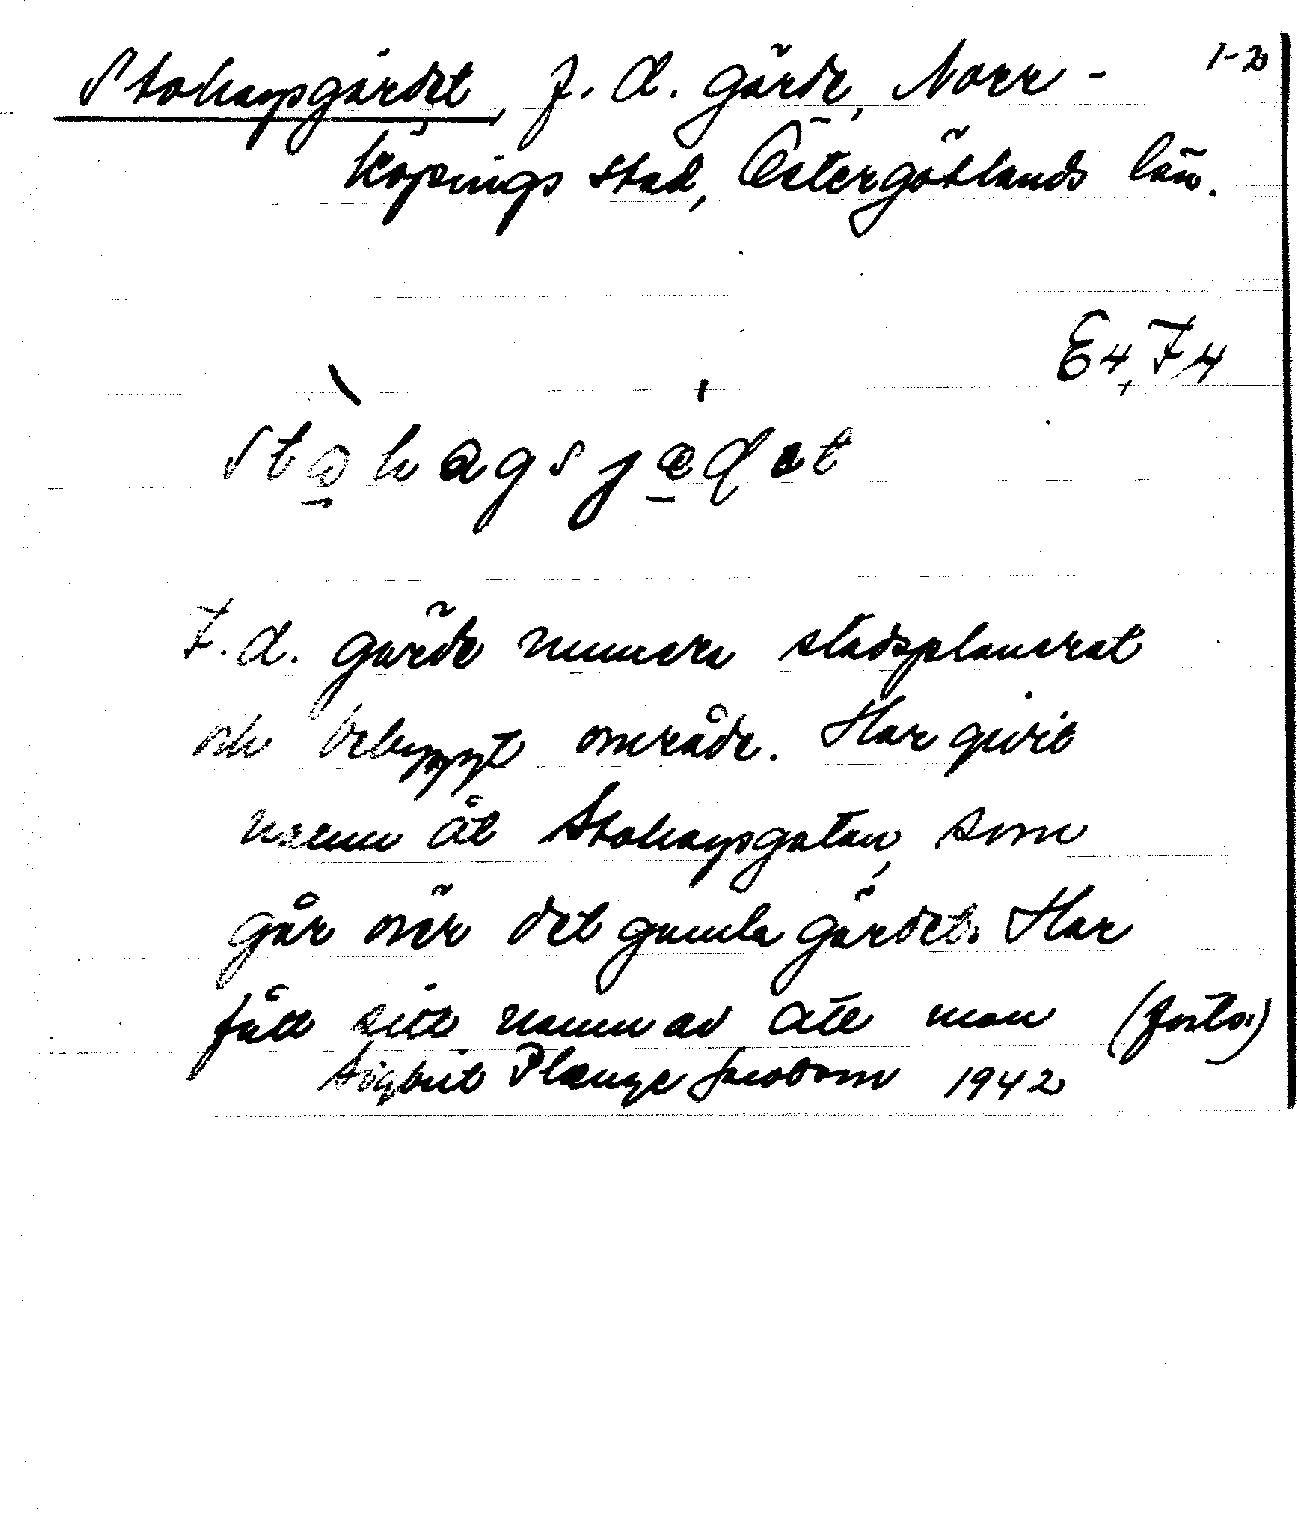 Stohagsgärdet, f. d. gärde, Norr- 1-2
köpings stad, Östergötlands län.
E4, F4
stohagsjædet
F. d. gärde numera stadsplanerat
och bebyggt område. Har givit
namn åt Stohagsgatan, som
går över det gamla gärdet. Har
fått sitt namn av att man (forts.)
Sigbrit Plænge Jacobson 1942